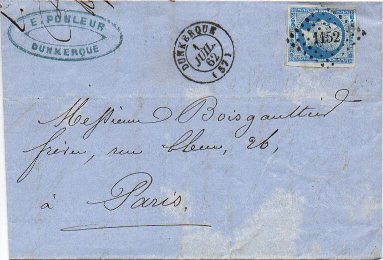 E. POULEUR
DUNKERQUE
DUNKERQUE
JUIL.
62
(57)
1152
Messieurs Boisgautier
frères, rue bleue, 26,
à Paris.